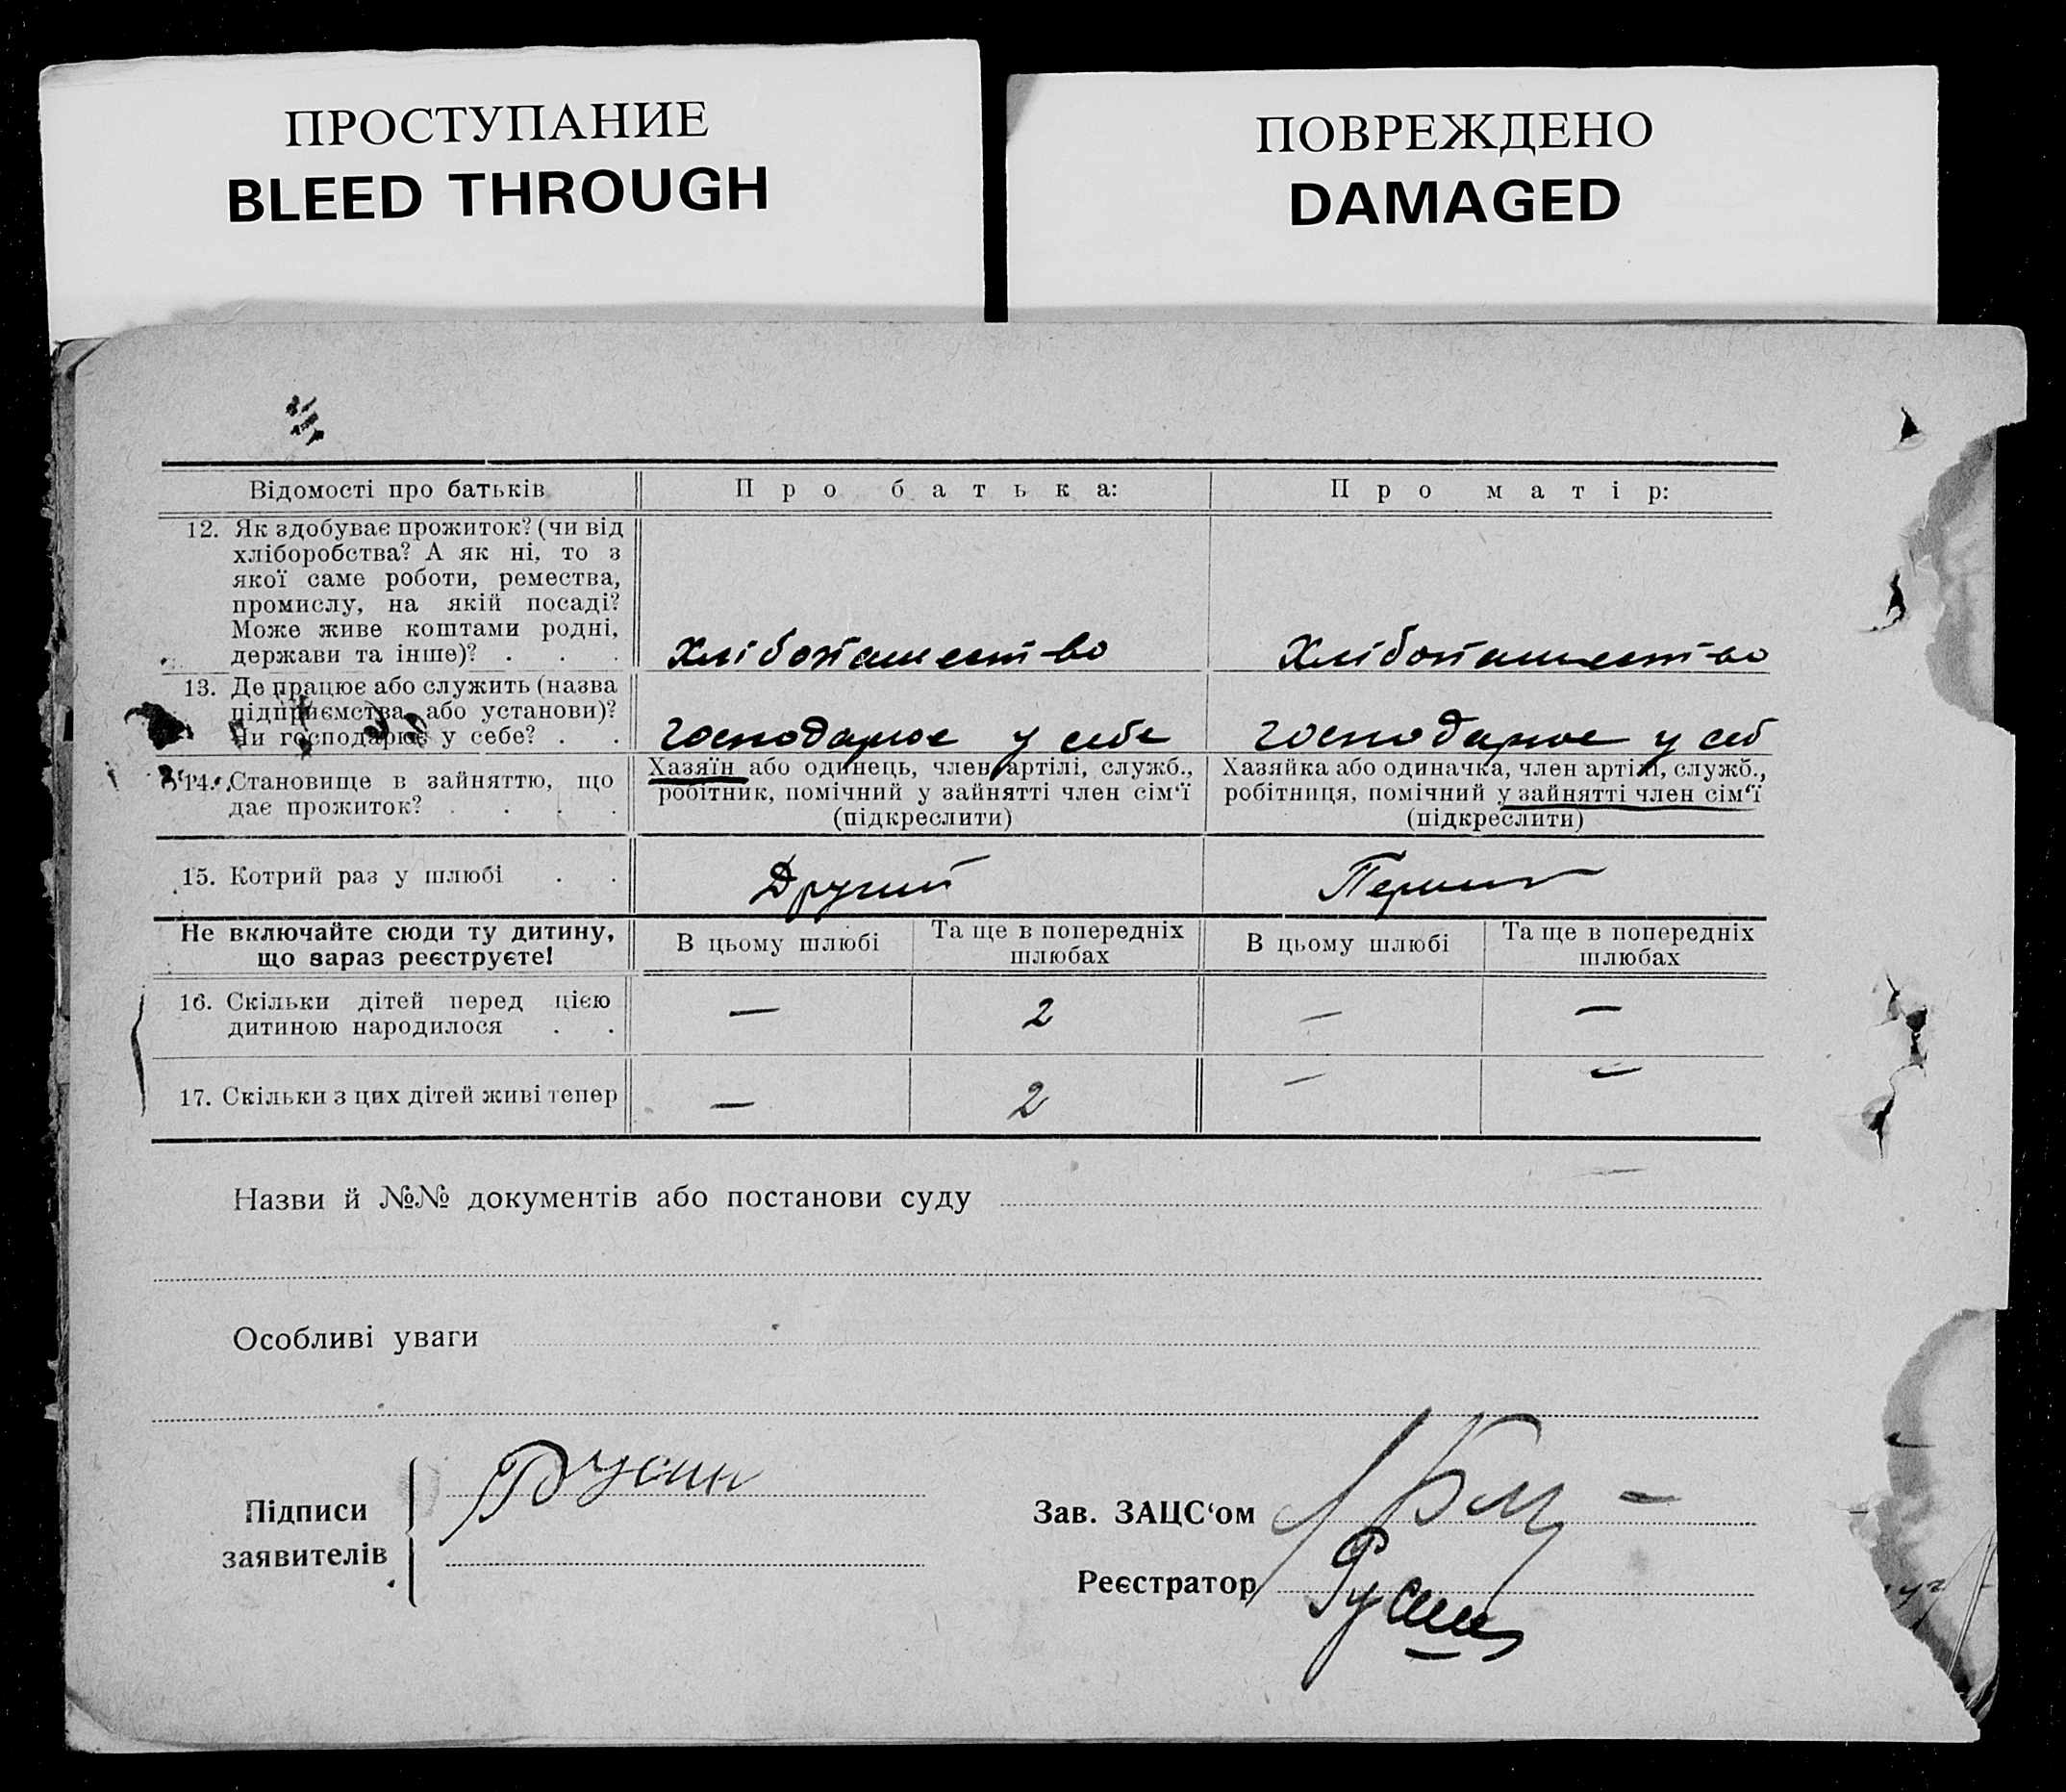 ПРОСТУПАНИЕ
BLEED THROUGH
ПОВРЕЖДЕНО
DAMAGED
Відомості про батьків
Про батька:
Про матір:
12. Як здобуває прожиток? (чи від
хліборобства? А як ні, то з
якої саме роботи, ремества,
промислу, на якій посаді?
Може живе коштами родні,
держави та інше)? . . .
Хлібопашество
Хлібопашество
13. Де працює або служить (назва
підприємства або установи)?
Чи господарює у себе? . .
господарює у себе
господарює у себ
14. Становище в зайняттю, що
дає прожиток? . . . .
Хазяїн або одинець, член артілі, служб.,
робітник, помічний у зайнятті член сім‘ї
(підкреслити)
Хазяйка або одиначка, член артілі, служб.,
робітниця, помічний у зайнятті член сім‘ї
(підкреслити)
15. Котрий раз у шлюбі . .
Другий
Перший
Не включайте сюди ту дитину,
що зараз реєструєте!
В цьому шлюбі
Та ще в попередніх
шлюбах
В цьому шлюбі
Та ще в попередніх
шлюбах
16. Скільки дітей перед цією
дитиною народилося . .
— 2 — —
17. Скільки з цих дітей живі тепер
— 2 — —
Назви й №№ документів або постанови суду
Особливі уваги
Підписи
заявителів
Зав. ЗАЦС‘ом
Реєстратор